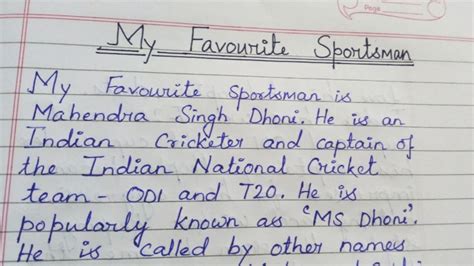 Page
My Favourite Sportsman
My Favourite sportsman is
Mahendra Singh Dhoni. He is an
Indian Cricketer and captain of
the Indian National Cricket
team - ODI and T20. He is
popularly known as 'MS Dhoni'.
He is called by other names